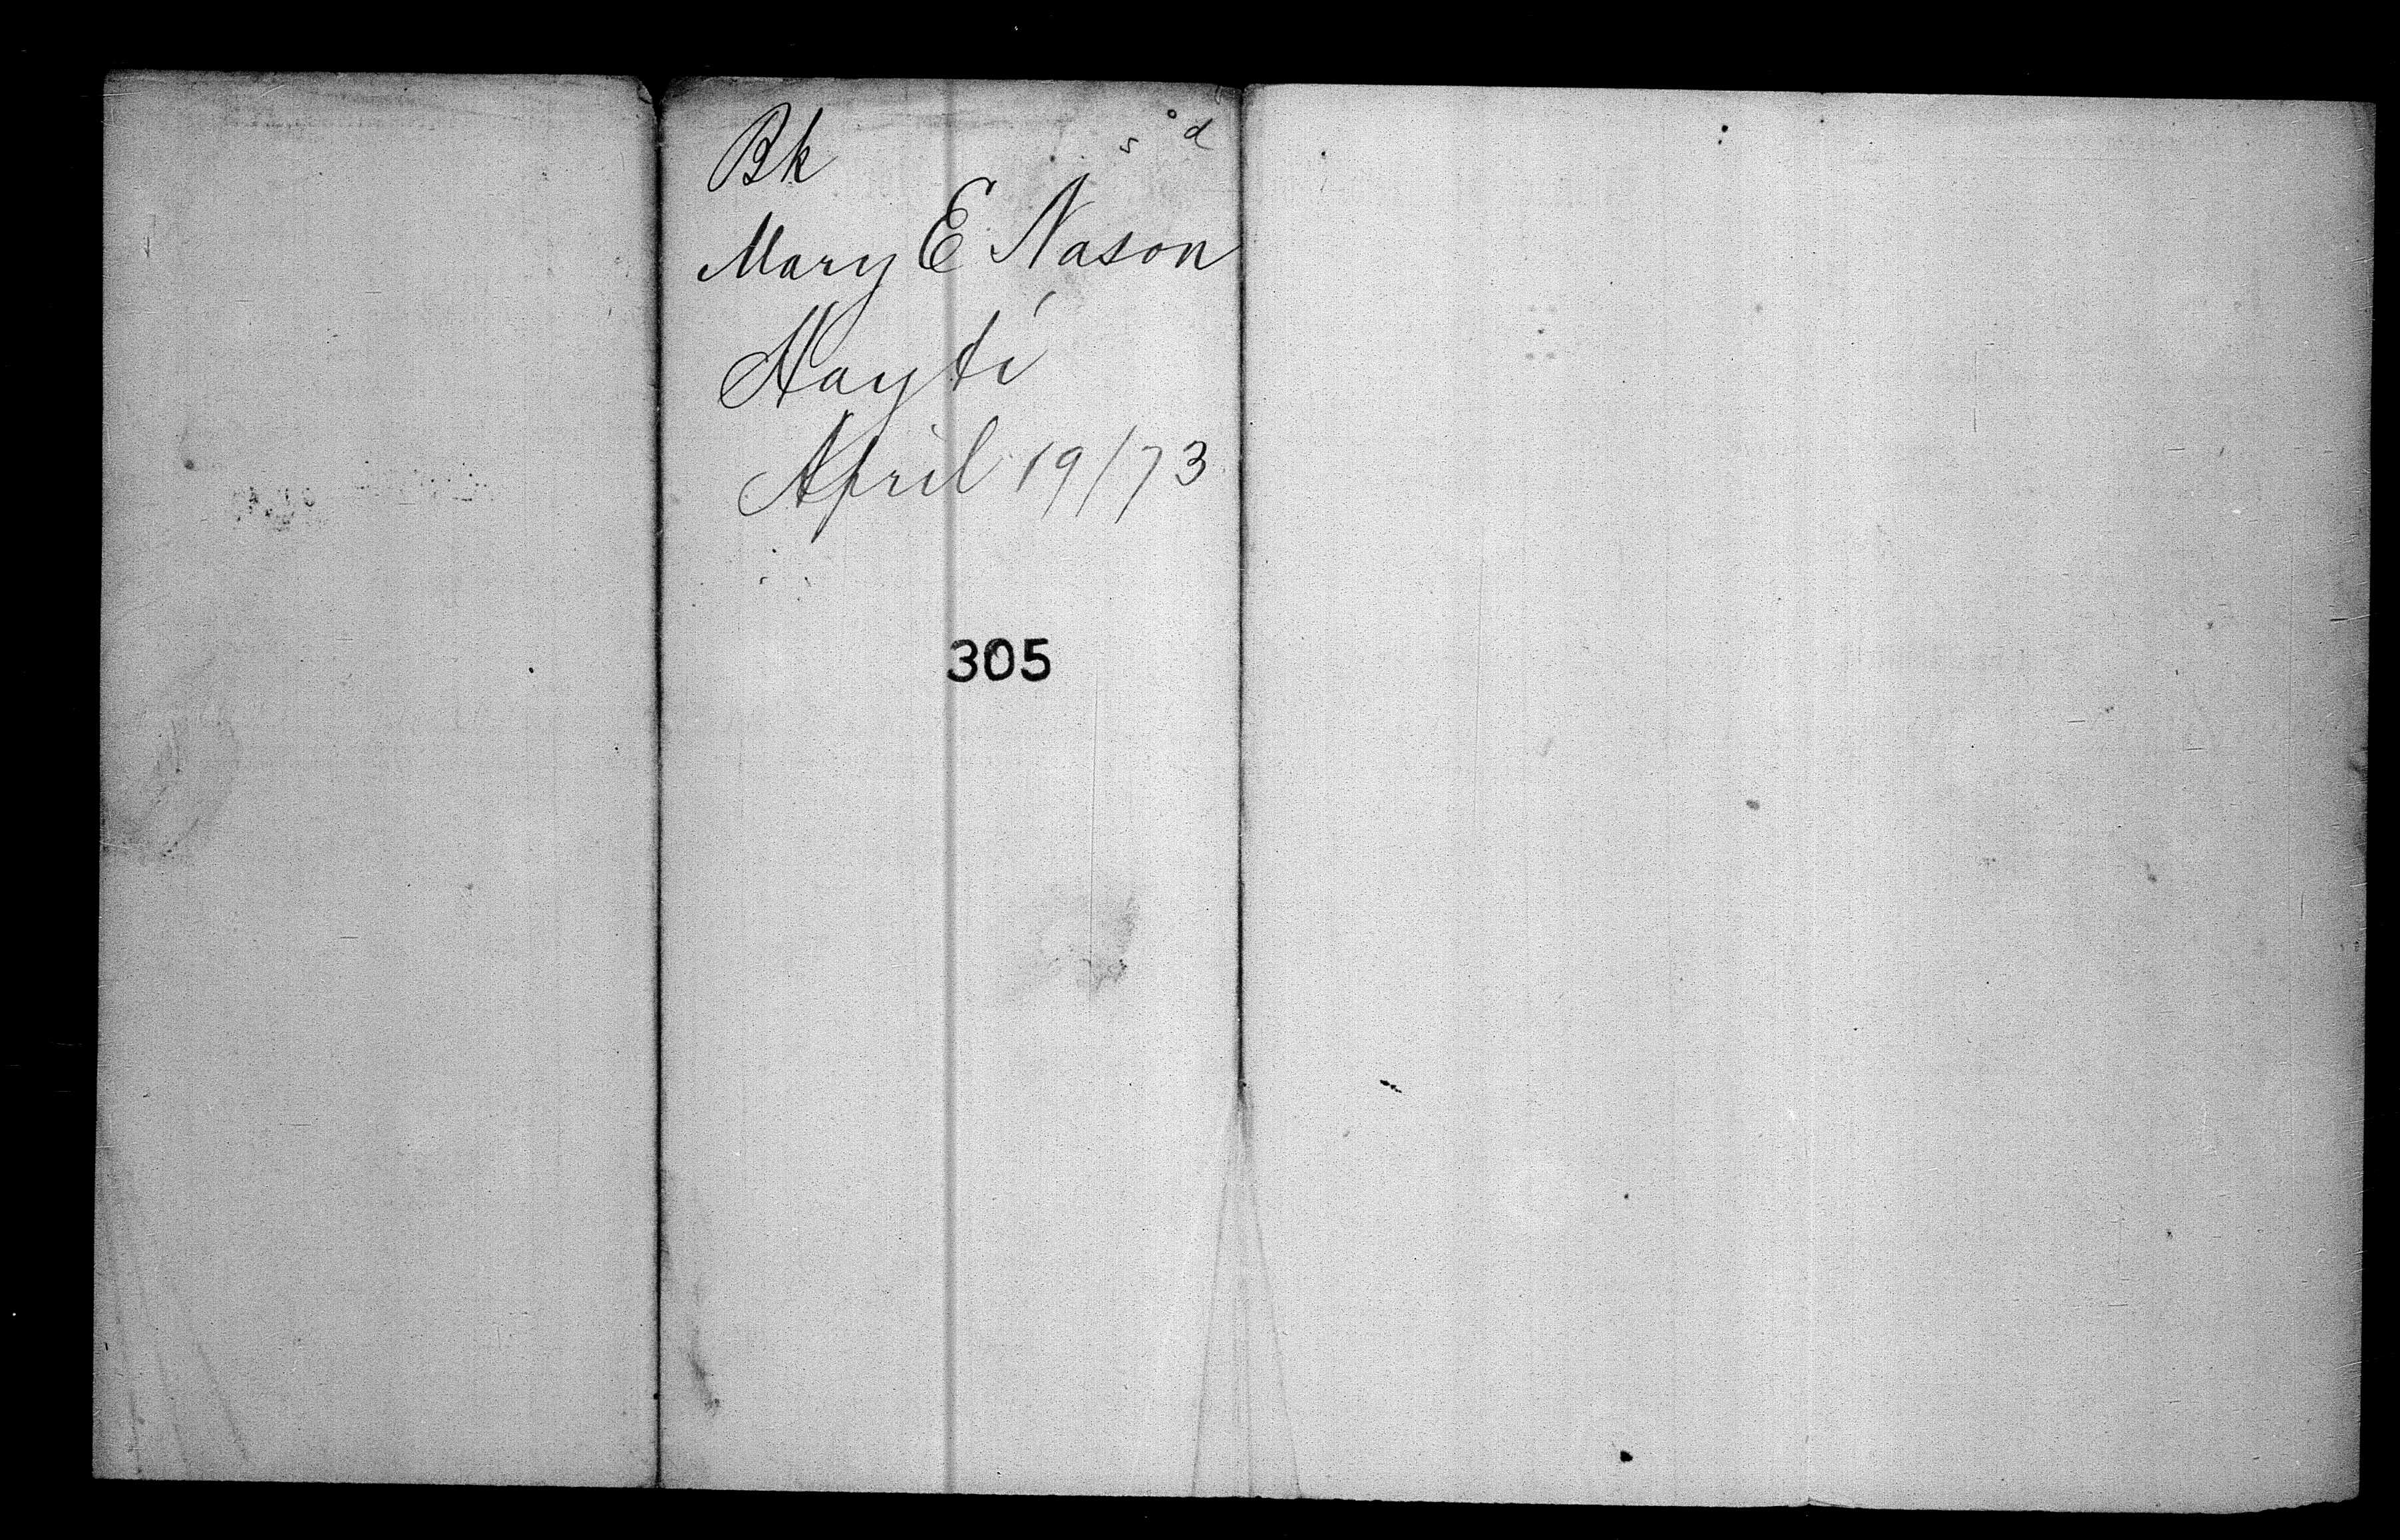 Bk
Mary E Nason
Hayti
April 19/73
305